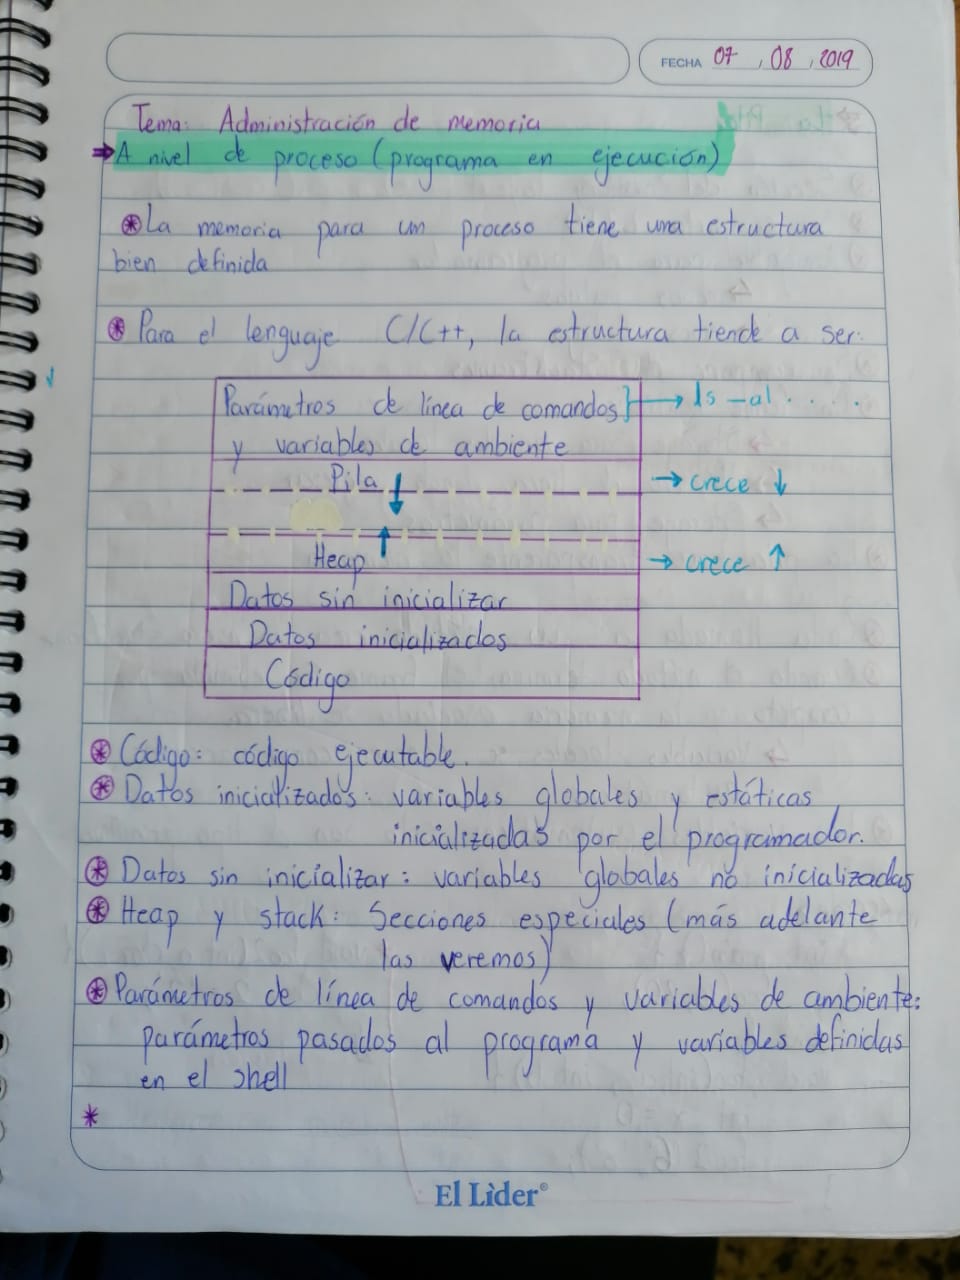 FECHA 07 , 08 , 2019
Tema: Administración de memoria
→ A nivel de proceso (programa en ejecución)
⊛ La memoria para un proceso tiene una estructura
bien definida
⊛ Para el lenguaje C/C++, la estructura tiende a ser:
Parámetros de línea de comandos } → ls -al . . . .
y variables de ambiente
Pila ↓ → crece ↓
Heap ↑ → crece ↑
Datos sin inicializar
Datos inicializados
Código
⊛ Código: código ejecutable.
⊛ Datos inicializados: variables globales y estáticas
inicializadas por el programador.
⊛ Datos sin inicializar: variables globales no inicializadas
⊛ Heap y stack: Secciones especiales (más adelante
las veremos)
⊛ Parámetros de línea de comandos y variables de ambiente:
parámetros pasados al programa y variables definidas
en el shell
*
El Lìder®